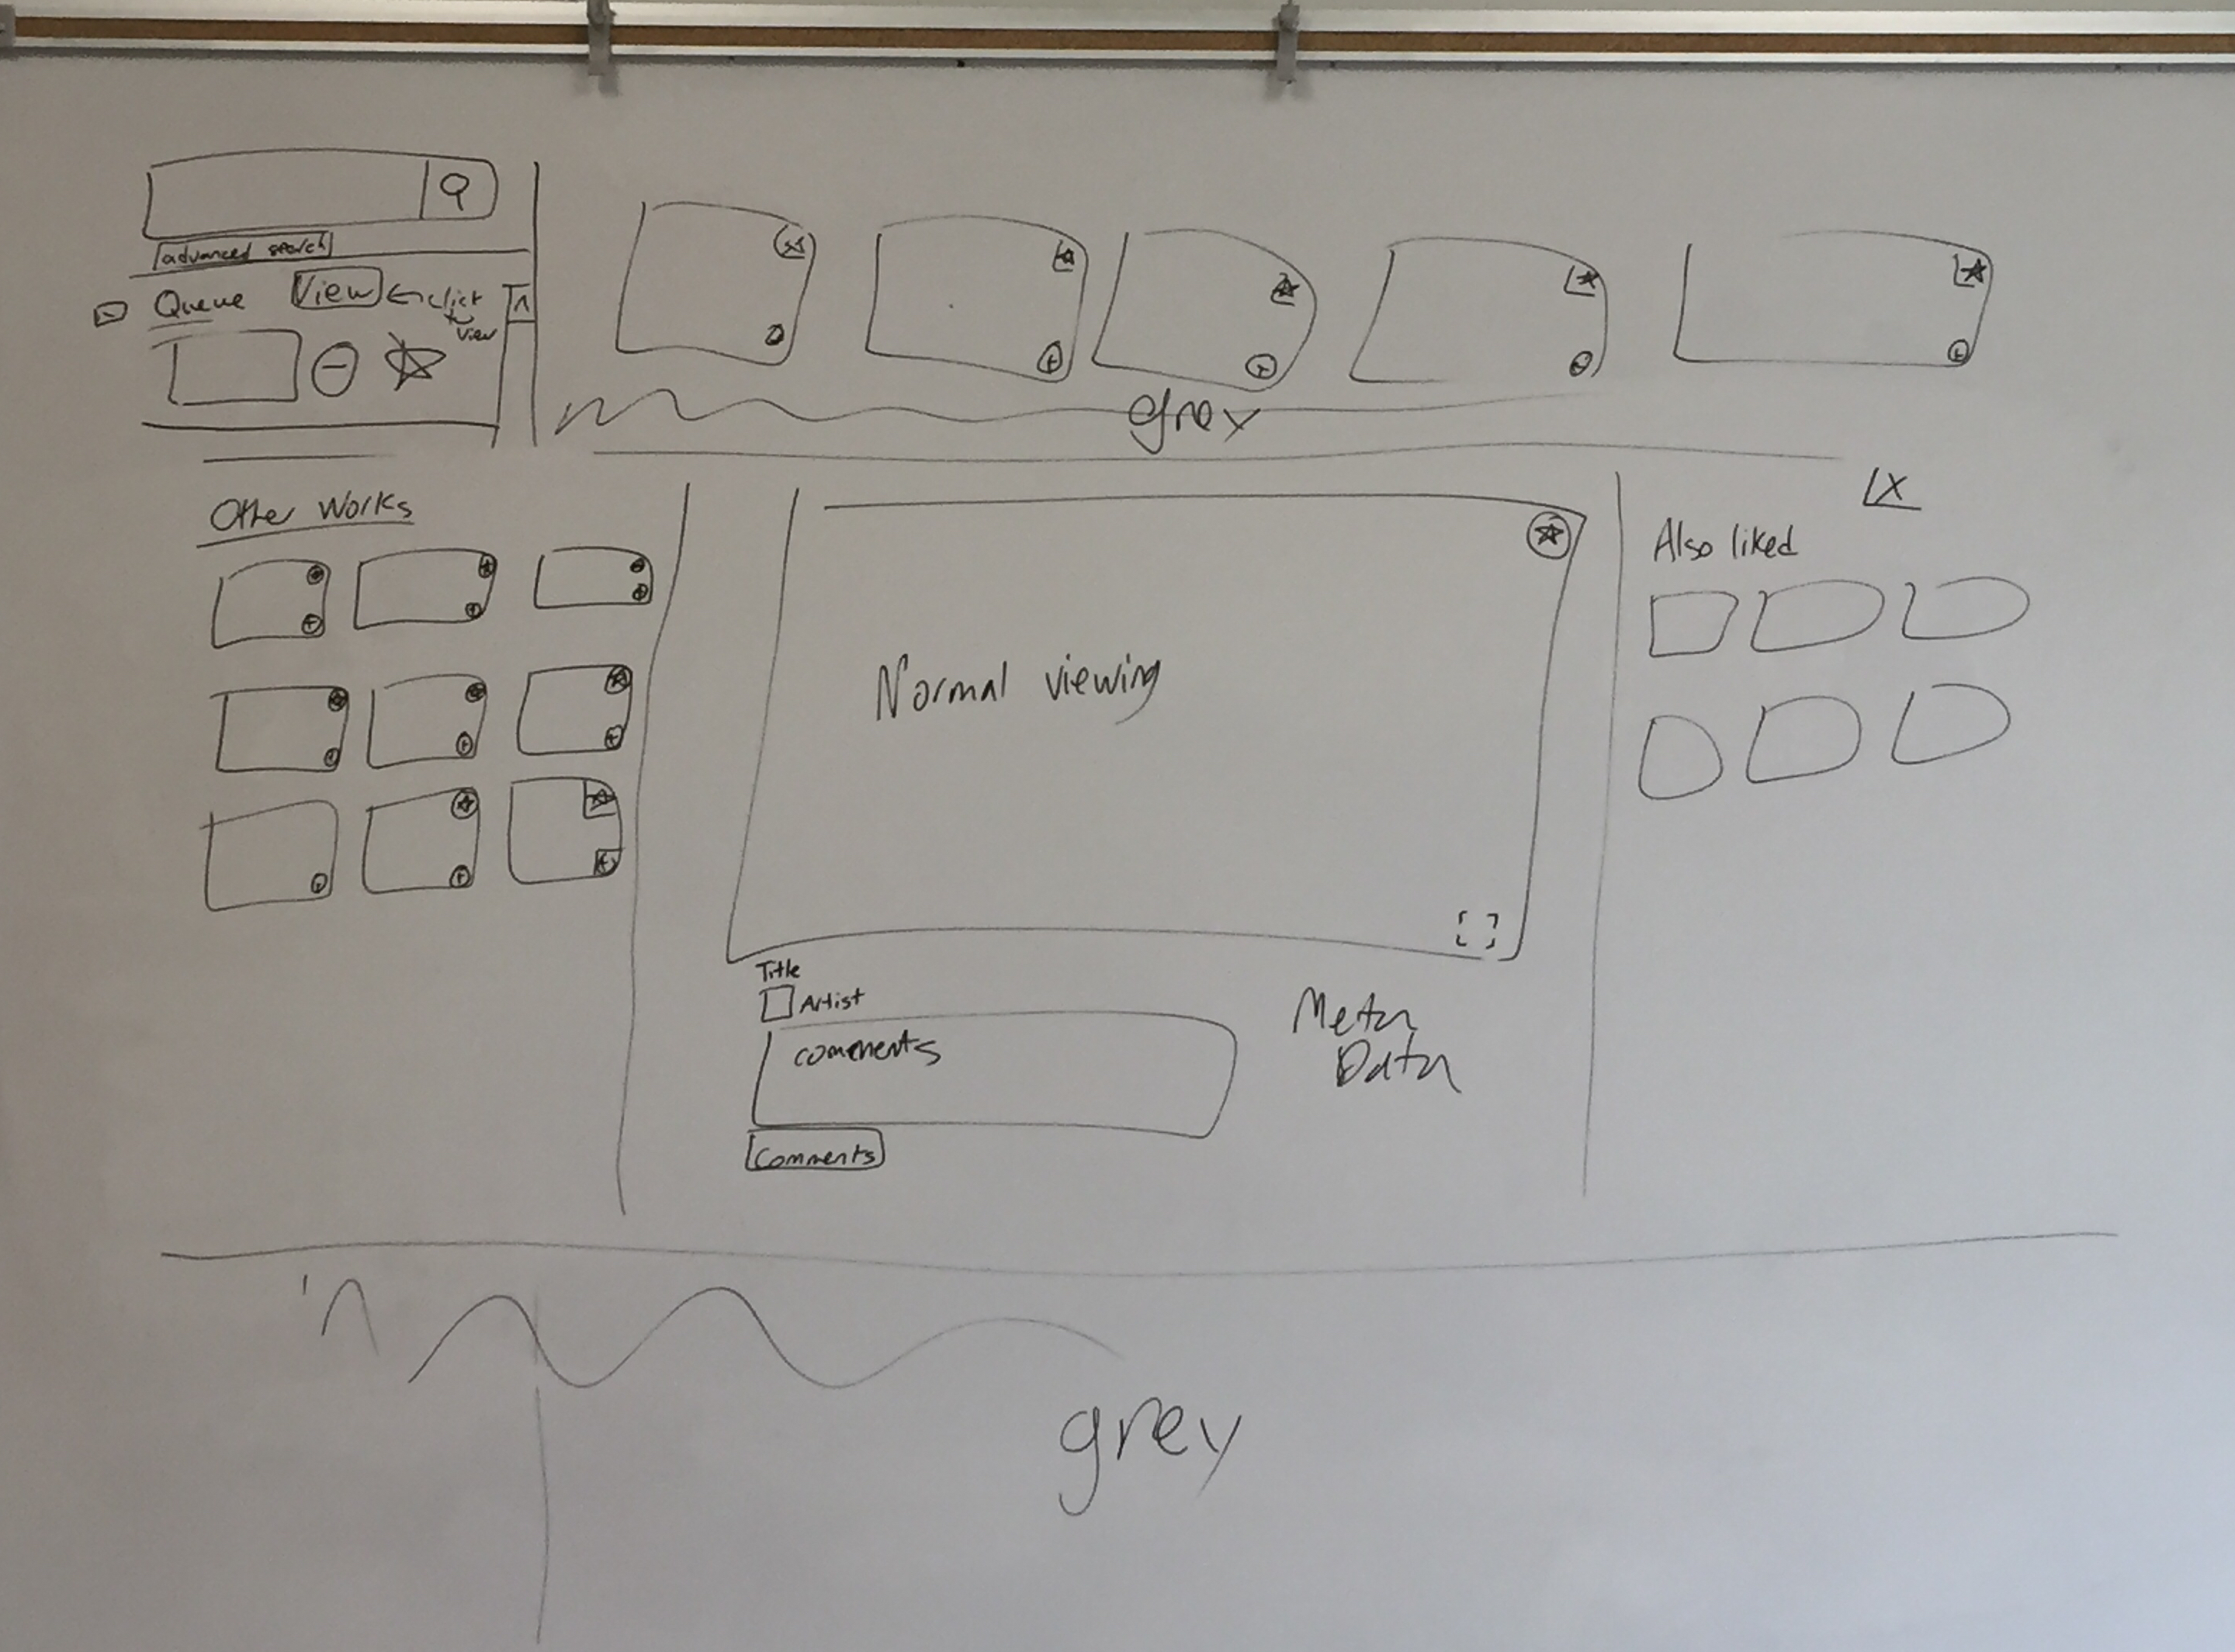 advanced search
Queue View ← click
to
view
grey
X
Other Works
Also liked
Normal viewing
Title
Artist
comments
Meta
Data
Comments
grey